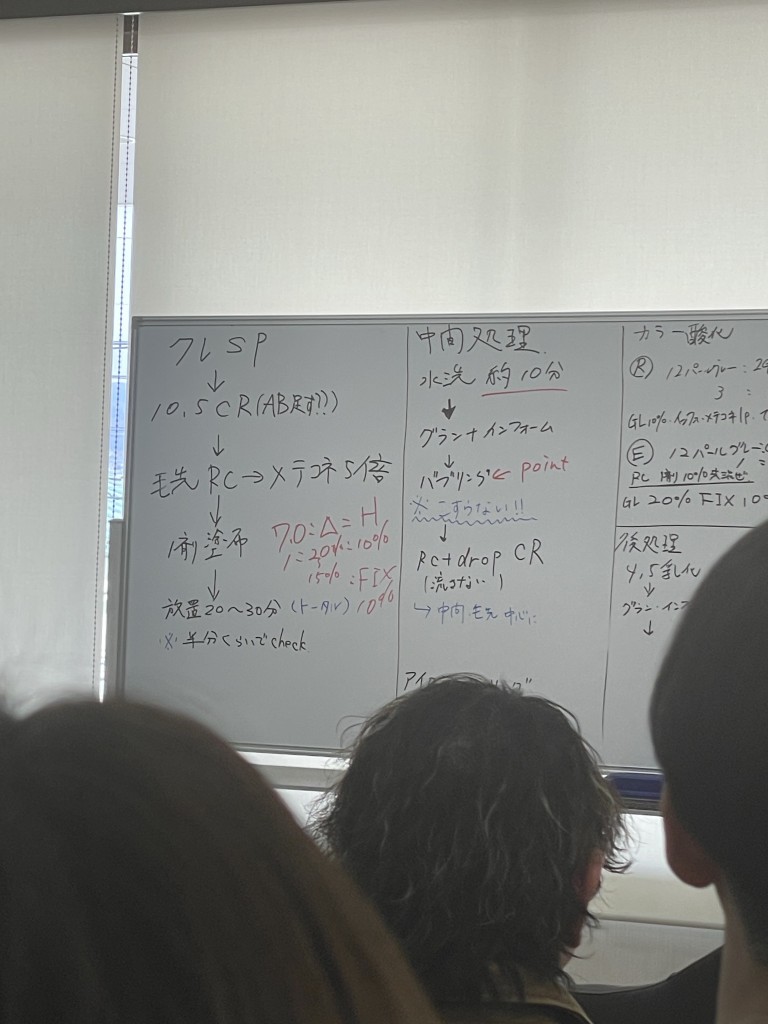 クレSP
↓
10.5CR(AB足す!?)
↓
毛先 RC→メテコネ5倍
↓
1剤塗布
7.0:△=H
1:20%:10%
15%:FIX
10%
↓
放置20〜30分 (トータル)
※ 半分くらいでcheck
中間処理
水洗 約10分
↓
グラン+インフォーム
↓
バブリング ← point
※こすらない!!
↓
RC+drop CR
(流さない)
↳中間毛先中心に
カラー酸化
Ⓡ 12パールグレー:
3 :
GL10%
Ⓔ 12パールグレー:
GL 20% FIX 10
後処理
4,5乳化
↓
グラン・インフ
↓